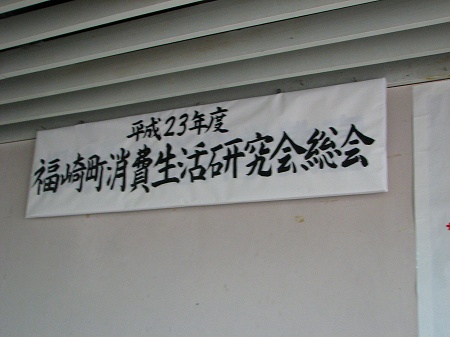 平成23年度
福崎町消費生活研究会総会